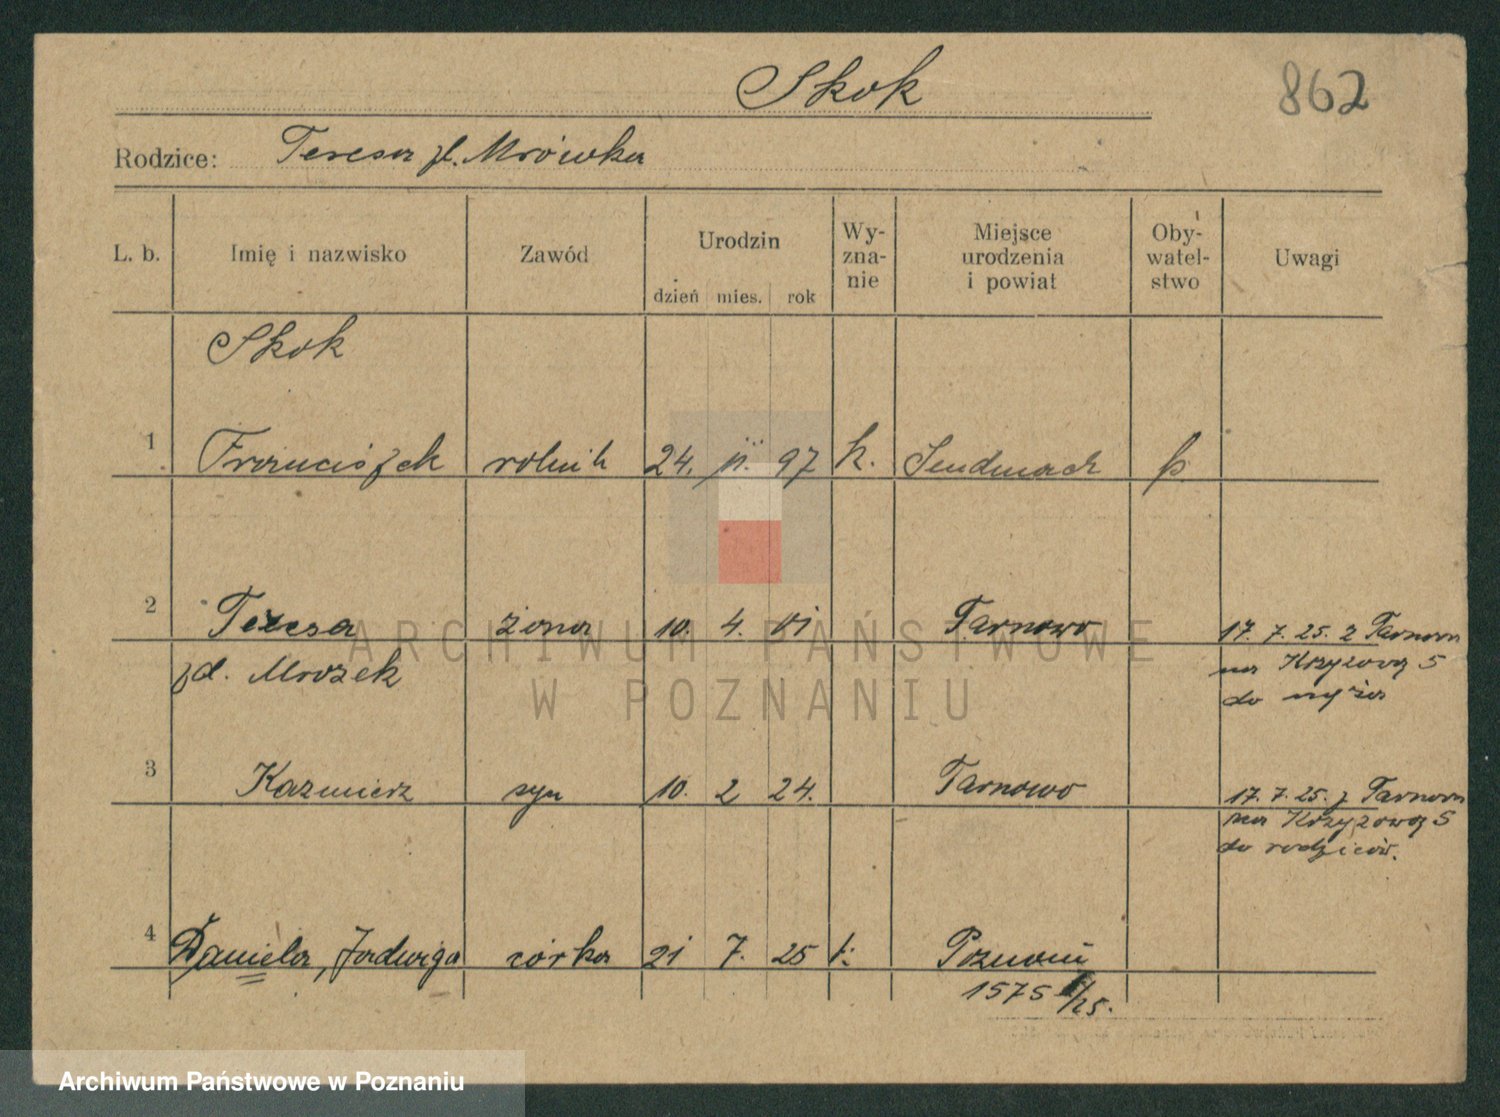 Skok
862
Rodzice: Teresa zd. Mrówka
L. b. Imię i nazwisko Zawód Urodzin dzień mies. rok Wy-zna-nie Miejsce urodzenia i powiat Oby-watel-stwo Uwagi
Skok
1 Franciszek rolnik 24. 97 k. Sendmach p.
2 Teresa żona 10. 4. 01 Tarnowo 17. 7. 25. z Tarnowa
zd. Mrozek na Krzyżową 5
do męża
3 Kazmierz syn 10. 2 24. Tarnowo 17. 7. 25. z Tarnowa
na Krzyżową 5
do rodziców.
4 Daniela, Jadwiga córka 21 7. 25 k. Poznań
1575 /25.
ARCHIWUM PAŃSTWOWE
W POZNANIU
Archiwum Państwowe w Poznaniu